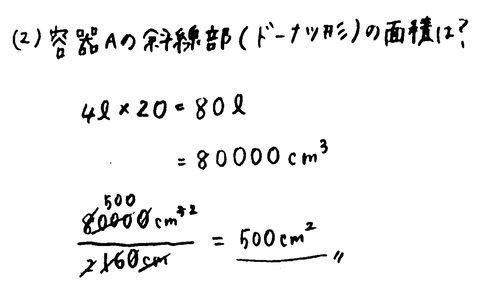 (2) 容器Aの斜線部(ドーナツ形)の面積は?
4ℓ×20=80ℓ
=80000cm³
500
80000cm³ ²
160cm
= 500cm²〃